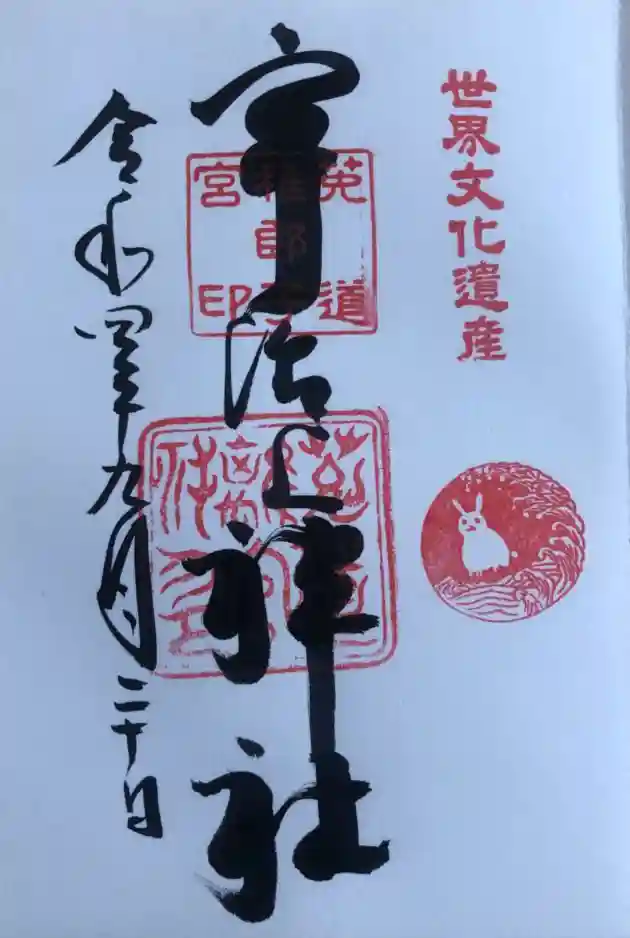 世界文化遺産
宇治上神社
菟道
稚郎子
宮印
令和四年九月二十日